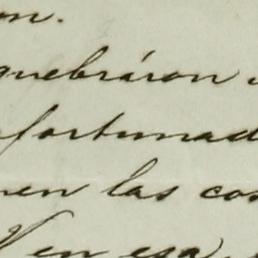 on.
quebráron
fortunad
en las cos
en esa